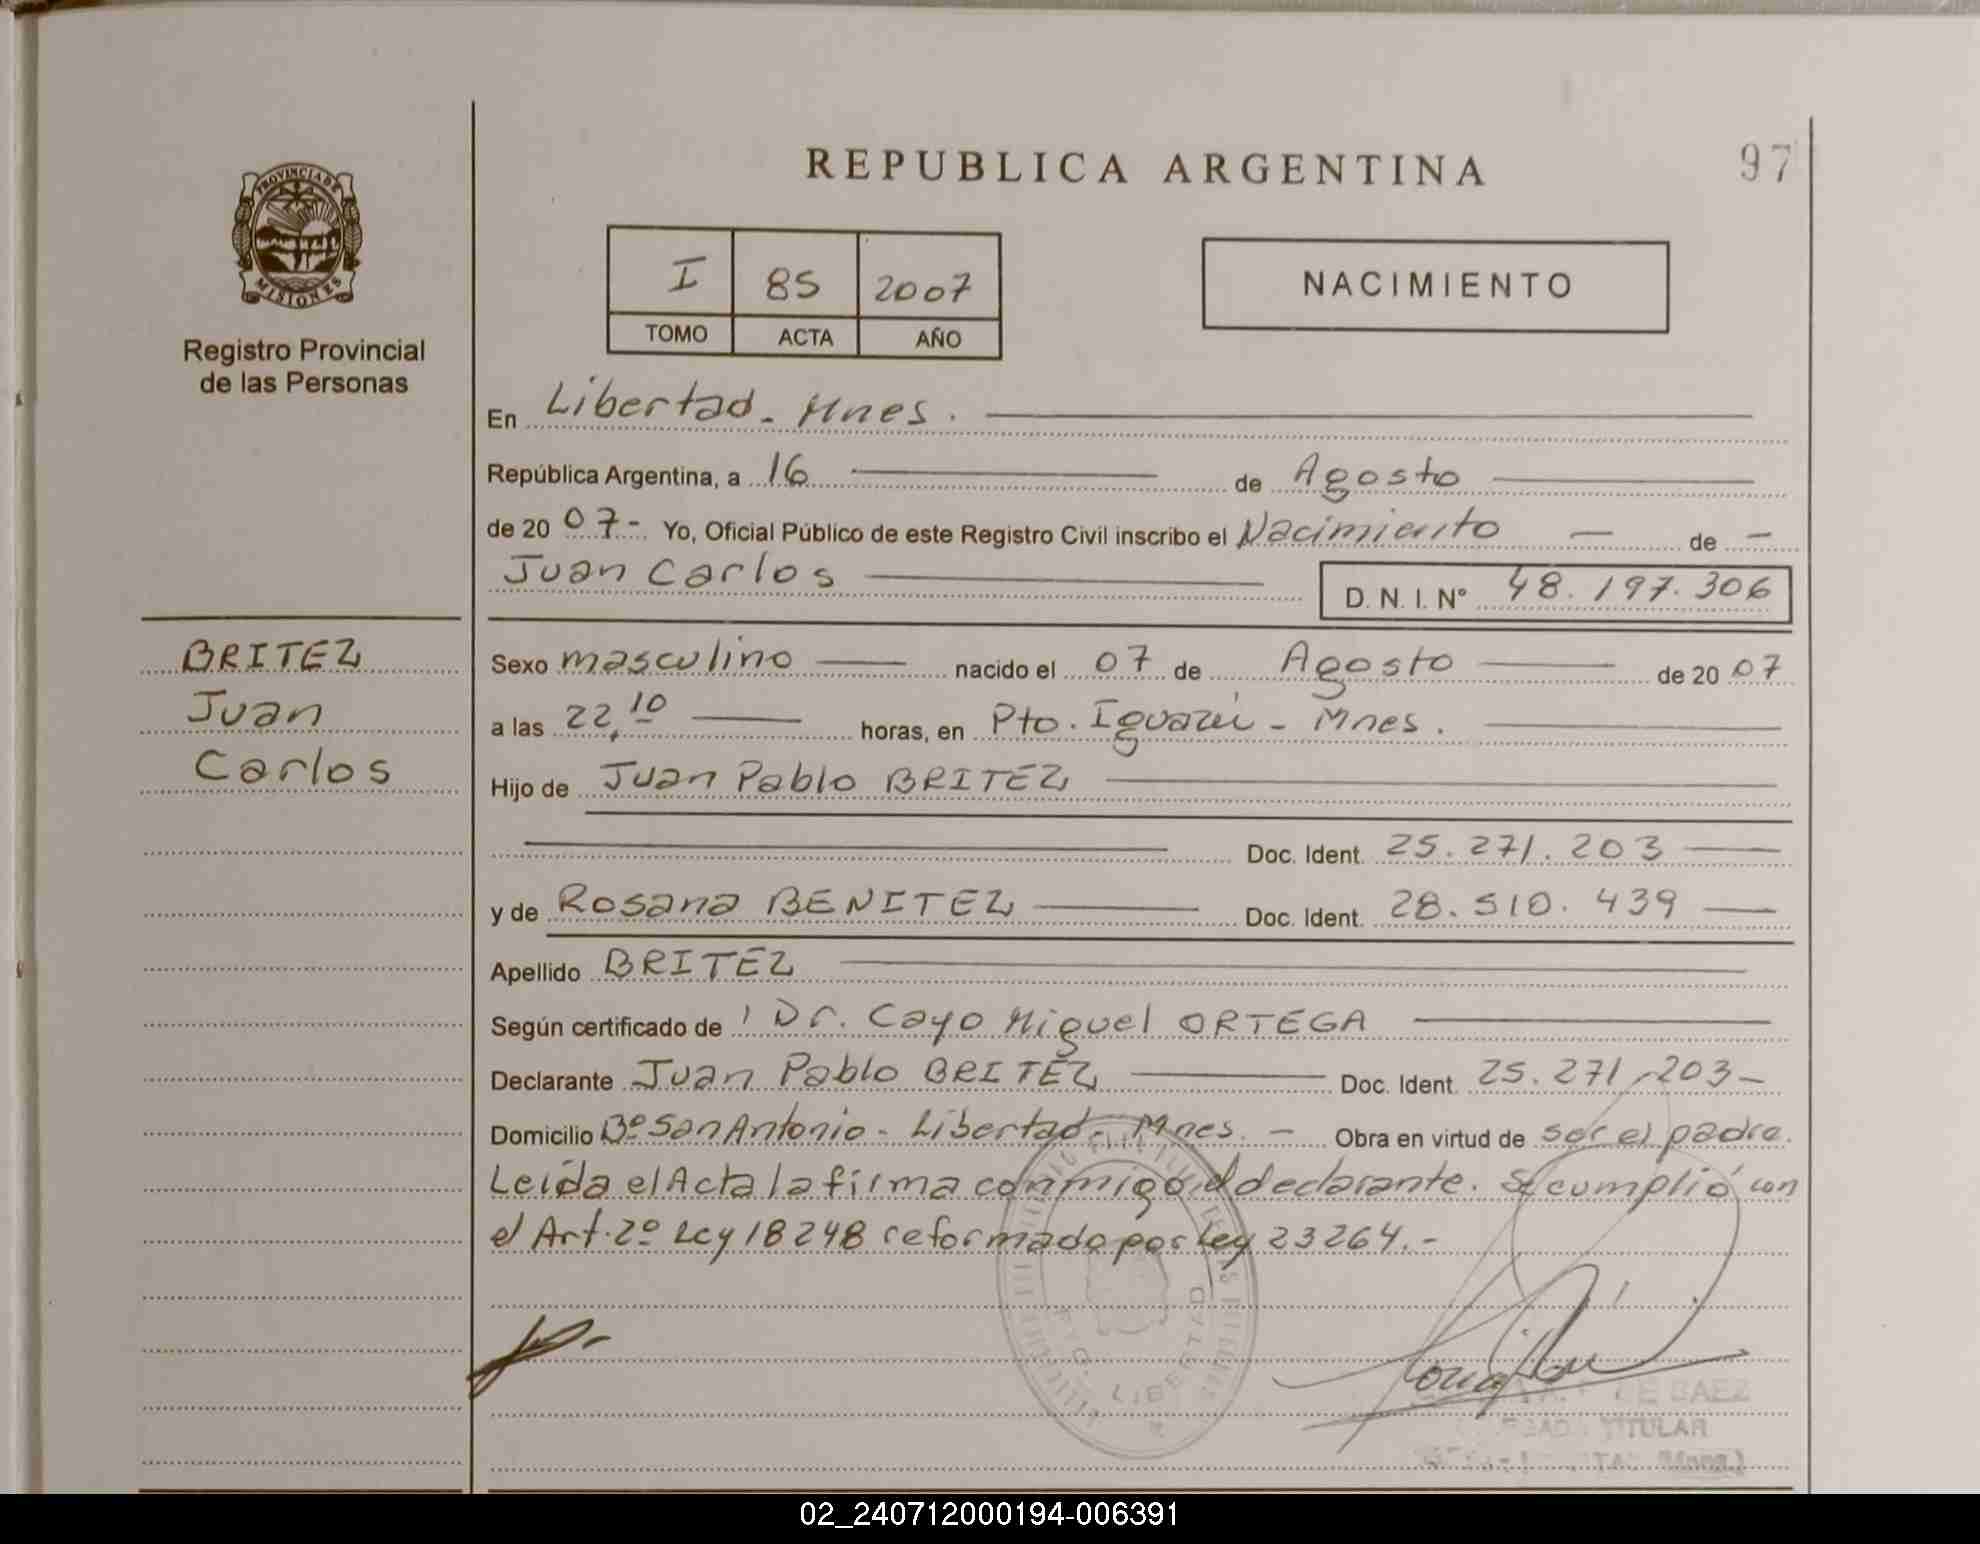 REPUBLICA ARGENTINA
97
PROVINCIA DE
MISIONES
Registro Provincial
de las Personas
I 85 2007
TOMO ACTA AÑO
NACIMIENTO
En Libertad - Mnes.
República Argentina, a 16 de Agosto
de 20 07.- Yo, Oficial Público de este Registro Civil inscribo el Nacimiento — de —
Juan Carlos
D. N. I. N° 48.197.306
BRITEZ
Juan
Carlos
Sexo masculino nacido el 07 de Agosto de 20 07
a las 22,10 horas, en Pto. Iguazú - Mnes.
Hijo de Juan Pablo BRITEZ
Doc. Ident. 25.271.203
y de Rosana BENITEZ Doc. Ident. 28.510.439
Apellido BRITEZ
Según certificado de Dr. Cayo Miguel ORTEGA
Declarante Juan Pablo BRITEZ Doc. Ident. 25.271.203-
Domicilio Bº San Antonio - Libertad - Mnes. - Obra en virtud de ser el padre.
Leída el Acta la firma conmigo el declarante. Se cumplió con
el Art. 2º Ley 18248 reformado por Ley 23264.-
LIBERTAD
DE BAEZ
TITULAR
02_240712000194-006391